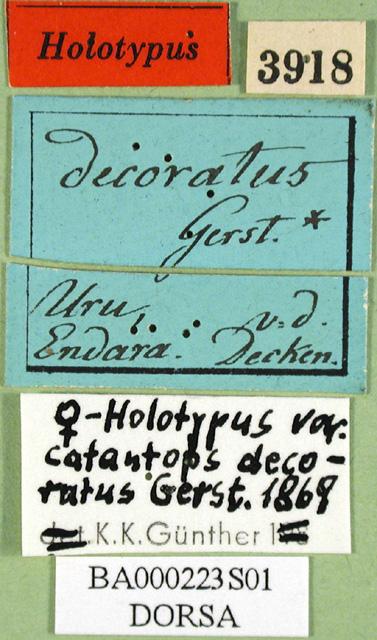 Holotypus
3918
decoratus
Gerst. *
Uru,
Endara. v. d. Decken.
♀-Holotypus var.
catantops deco-
ratus Gerst. 1869
det. K. K. Günther
BA000223S01
DORSA